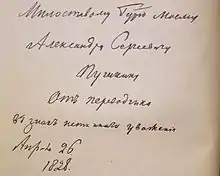 Милостивому Гдрю Моему
Александру Сергеевичу
Пушкину
Отъ переводчика
въ знакъ истиннаго уваженія
Апрѣля 26
1828.